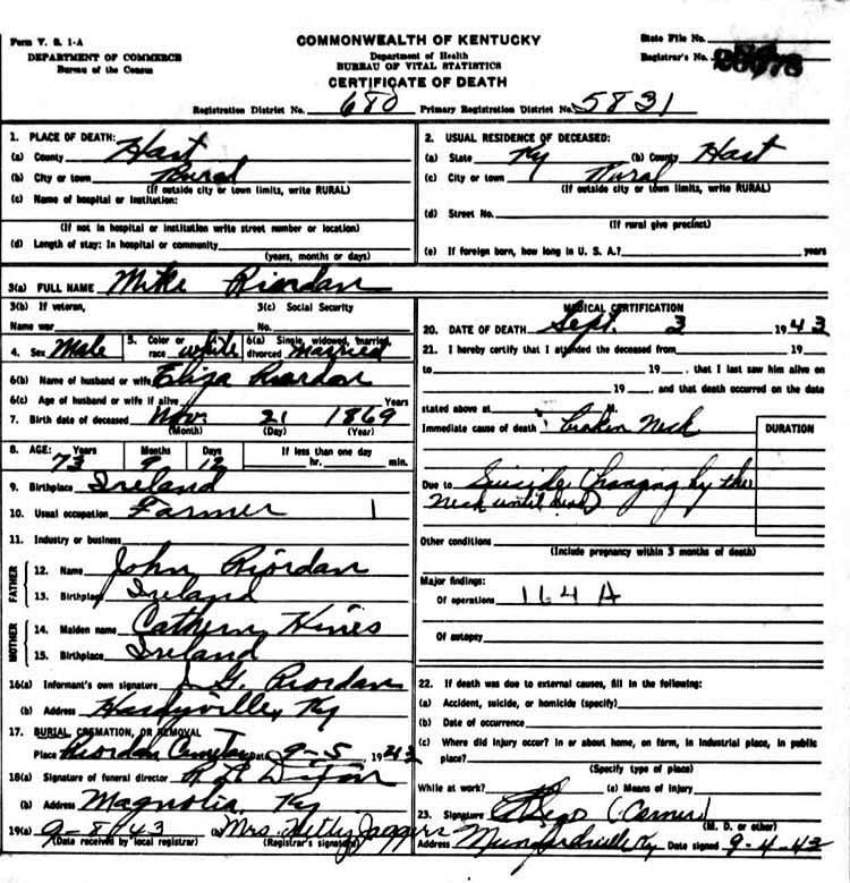 Form V. S. 1-A
DEPARTMENT OF COMMERCE
Bureau of the Census
COMMONWEALTH OF KENTUCKY
Department of Health
BUREAU OF VITAL STATISTICS
CERTIFICATE OF DEATH
State File No.
Registrar's No.
Registration District No. 680 Primary Registration District No. 5831
1. PLACE OF DEATH:
(a) County Hart
(b) City or town Rural
(If outside city or town limits, write RURAL)
(c) Name of hospital or institution:
(If not in hospital or institution write street number or location)
(d) Length of stay: In hospital or community
(years, months or days)
2. USUAL RESIDENCE OF DECEASED:
(a) State Ky (b) County Hart
(c) City or town Rural
(If outside city or town limits, write RURAL)
(d) Street No.
(If rural give precinct)
(e) If foreign born, how long in U. S. A.? years
3(a) FULL NAME Mike Riordan
3(b) If veteran, 3(c) Social Security
Name war No.
4. Sex Male 5. Color or race white 6(a) Single, widowed, married, divorced married
6(b) Name of husband or wife Eliza Riordon
6(c) Age of husband or wife if alive Years
7. Birth date of deceased Nov. 21 1869
(Month) (Day) (Year)
8. AGE: Years Months Days If less than one day
73 9 12 hr. min.
9. Birthplace Ireland
10. Usual occupation Farmer 1
11. Industry or business
FATHER
12. Name John Riordan
13. Birthplace Ireland
MOTHER
14. Maiden name Cathern Hines
15. Birthplace Ireland
16(a) Informant's own signature G. Riordan
(b) Address Hardyville, Ky
17. BURIAL, CREMATION, OR REMOVAL
Place Riordan Cemetery Date 9-5, 1943
18(a) Signature of funeral director Dixon
(b) Address Magnolia, Ky
19(a) 9-8-43 (b) Mrs. Hetty Jaggers
(Date received by local registrar) (Registrar's signature)
MEDICAL CERTIFICATION
20. DATE OF DEATH Sept. 3 1943
21. I hereby certify that I attended the deceased from 19
to 19 , that I last saw him alive on
19 , and that death occurred on the date
stated above at M.
Immediate cause of death broken neck
DURATION
Due to Suicide (hanging by the
neck until dead)
Other conditions
(Include pregnancy within 3 months of death)
Major findings:
Of operations 164 A
Of autopsy
22. If death was due to external causes, fill in the following:
(a) Accident, suicide, or homicide (specify)
(b) Date of occurrence
(c) Where did injury occur? In or about home, on farm, in industrial place, in public
place?
(Specify type of place)
While at work? (e) Means of injury
23. Signature (Corner)
(M. D. or other)
Address Munfordville Ky Date signed 9-4-43